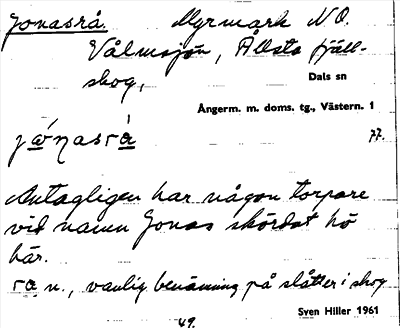 Jonasrå. Myrmark NO.
Vålmsjön, Ålsta fjäll-
skog,
Dals sn
Ångerm. m. doms. tg., Västern. 1
77.
Antagligen har någon torpare
vid namn Jonas skördat hö
här.
rå n., vanlig benämning på slåtter i skog
Sven Hiller 1961
49.